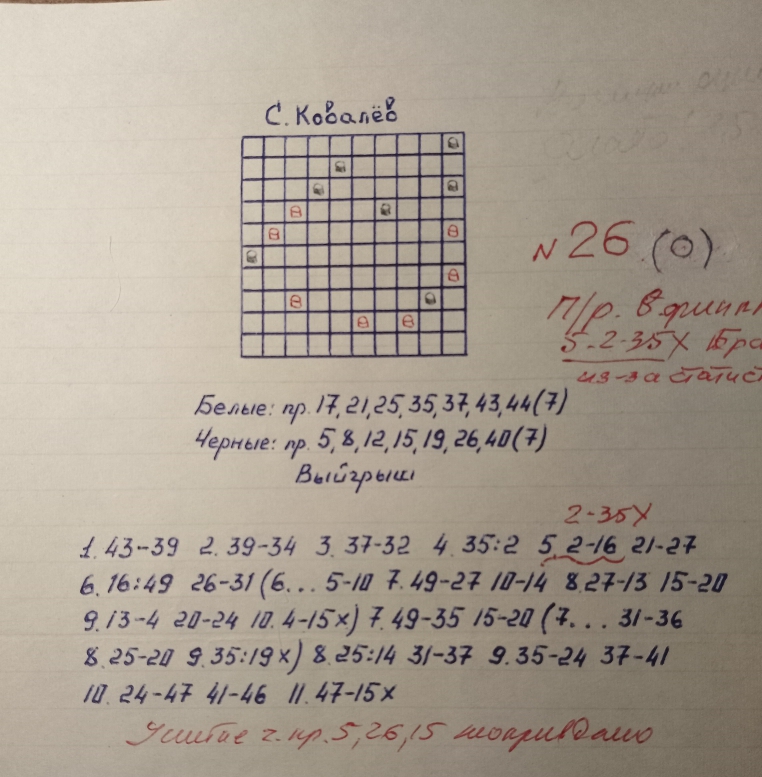 С. Ковалёв
N 26 (0)
П/р. в финал
5-2-35X
из-за статист
Белые: пр. 17, 21, 25, 35, 37, 43, 44 (7)
Черные: пр. 5, 8, 12, 15, 19, 26, 40 (7)
Выйгрыш
2-35X
1. 43-39 2. 39-34 3. 37-32 4. 35:2 5. 2-16 21-27
6. 16:49 26-31 (6... 5-10 7. 49-27 10-14 8. 27-13 15-20
9. 13-4 20-24 10. 4-15x) 7. 49-35 15-20 (7... 31-36
8. 25-20 9. 35:19x) 8. 25:14 31-37 9. 35-24 37-41
10. 24-47 41-46 11. 47-15x
ч. пр. 5, 26, 15 неоправдано